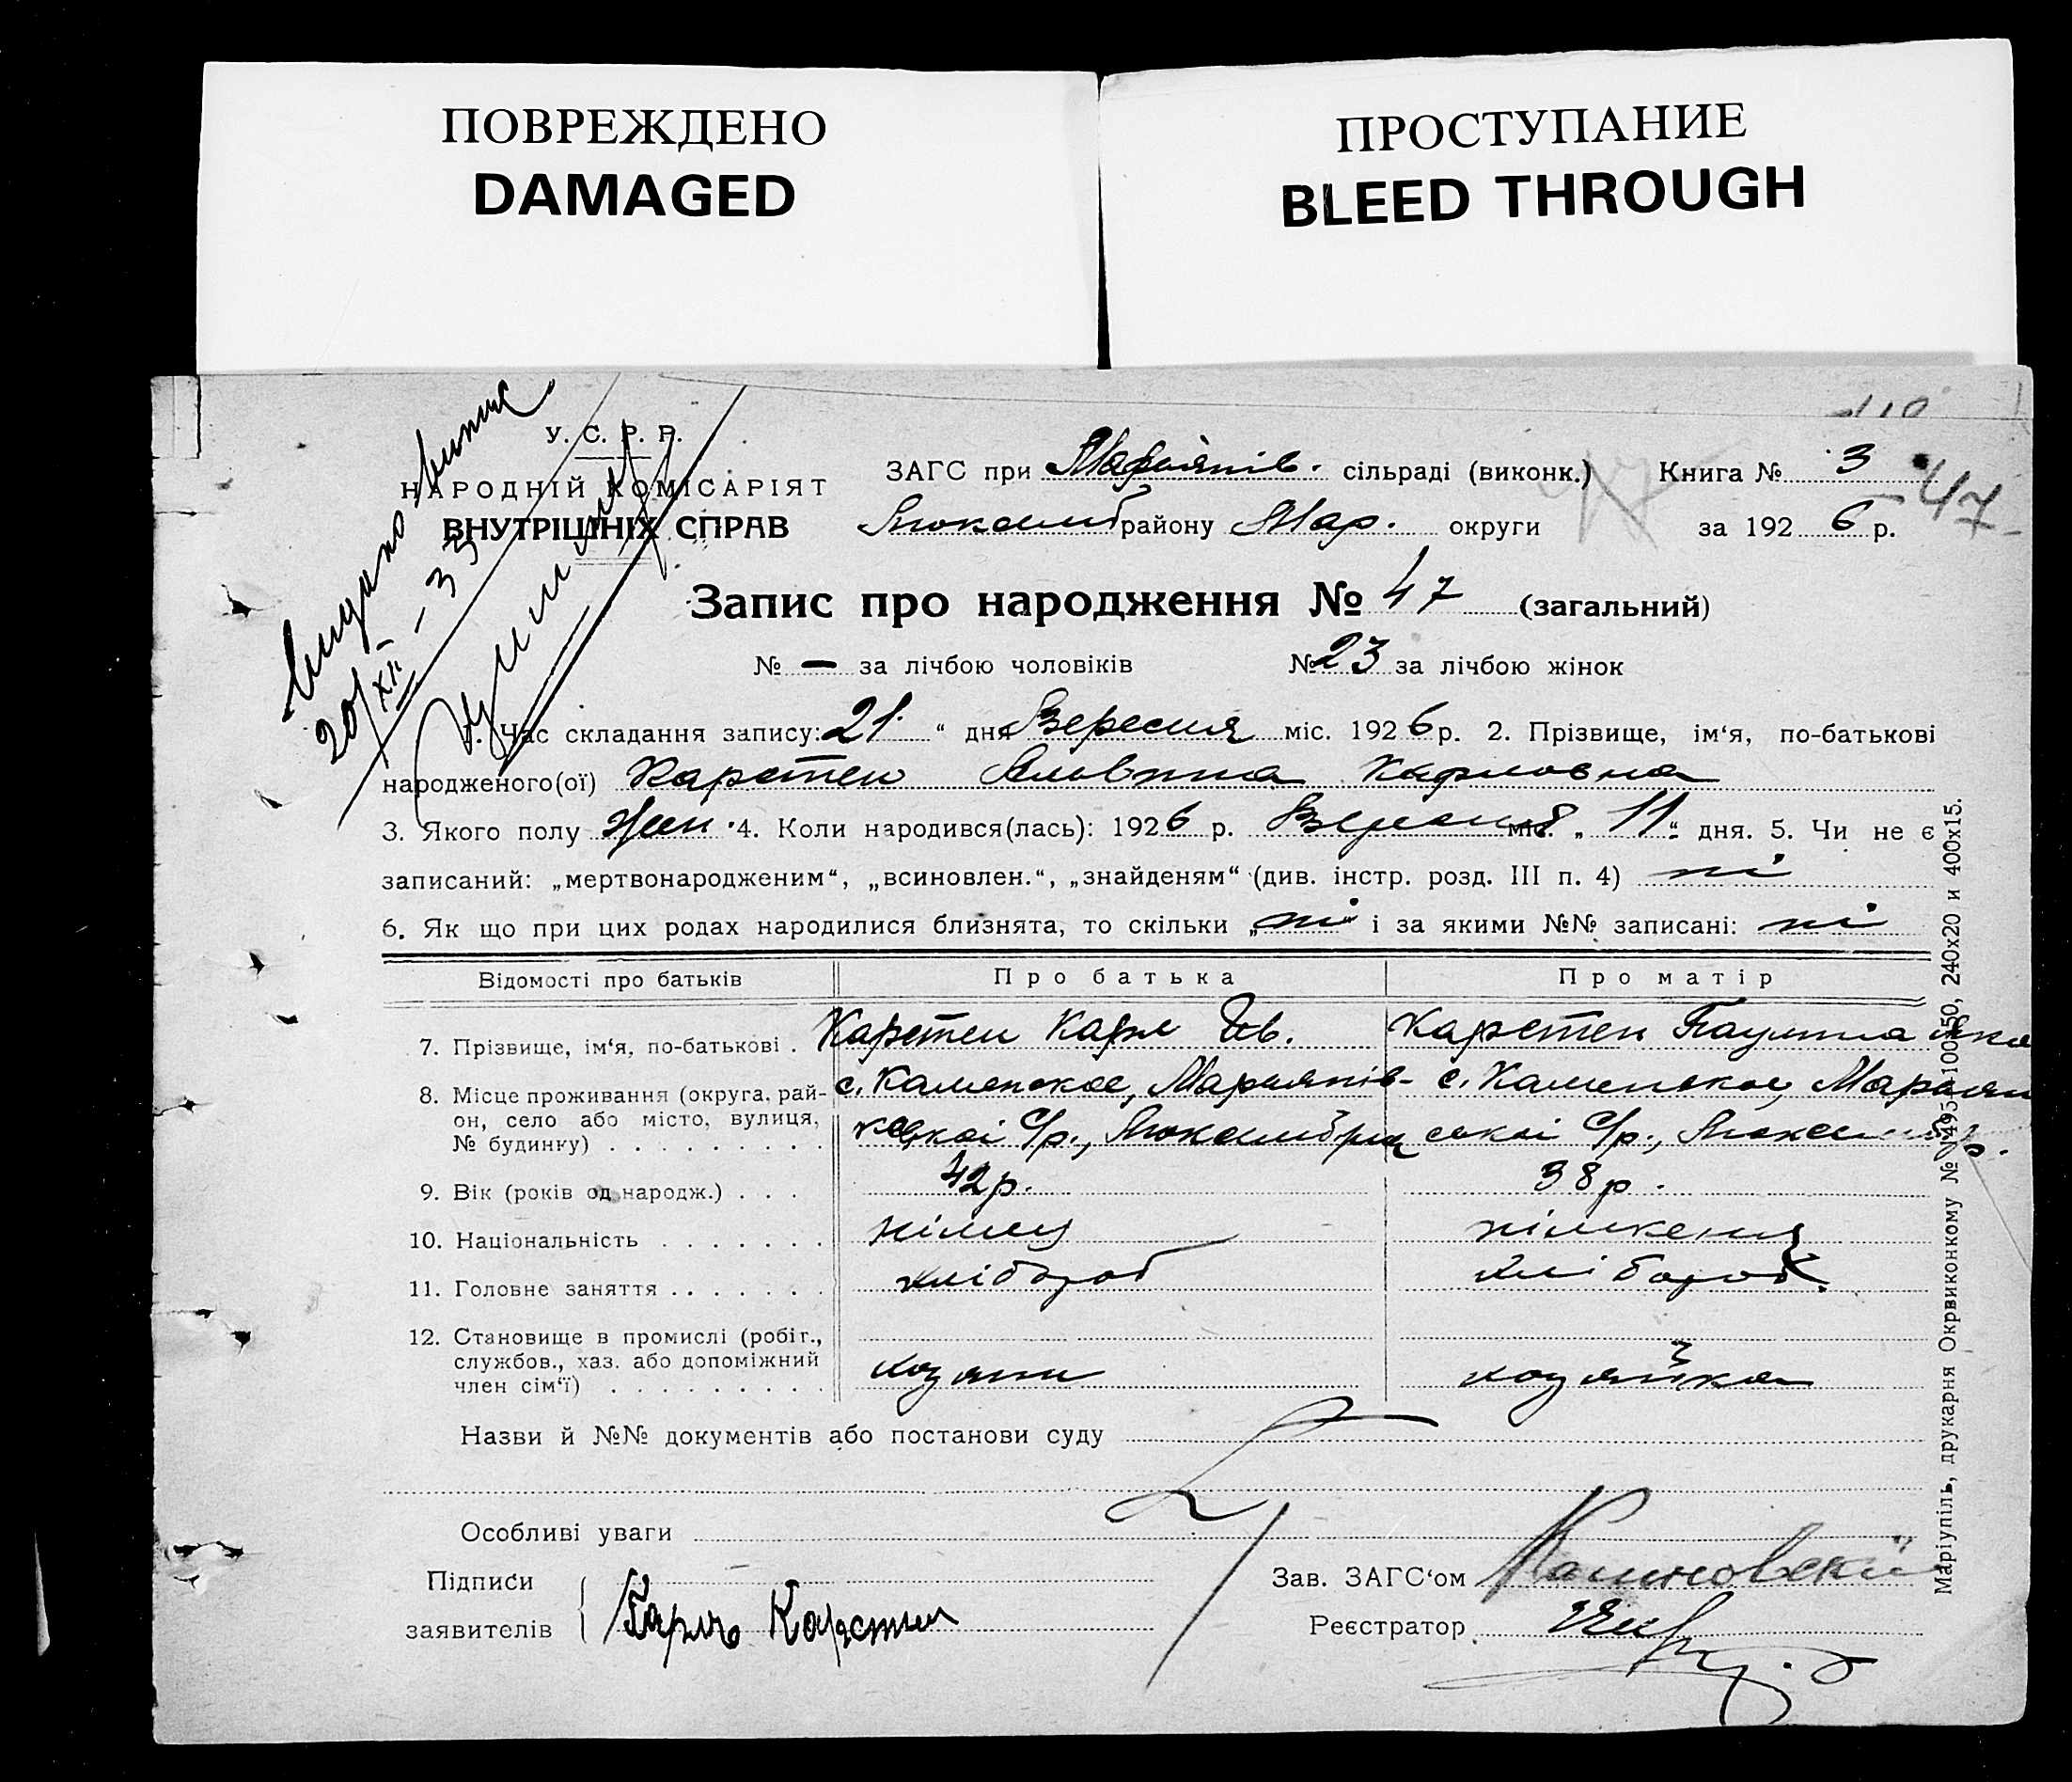 ПОВРЕЖДЕНО
DAMAGED
ПРОСТУПАНИЕ
BLEED THROUGH
У. С. Р. Р.
НАРОДНІЙ КОМІСАРІЯТ
ВНУТРІШНІХ СПРАВ
20/XII – 33
ЗАГС при Мар'янів. сільраді (виконк.) Книга № 3
47
Люксемб району Мар. округи за 1926 р.
Запис про народження № 47 (загальний)
№ — за лічбою чоловіків № 23 за лічбою жінок
1. Час складання запису: 21 “ дня Вересня міс. 1926 р. 2. Прізвище, ім‘я, по-батькові
народженого(ої) Карстен Альвина Карловна
3. Якого полу жен. 4. Коли народився(лась): 1926 р. Вересня міс. „ 11 “ дня. 5. Чи не є
записаний: „мертвонародженим“, „всиновлен.“, „знайденям“ (див. інстр. розд. III п. 4) ні
6. Як що при цих родах народилися близнята, то скільки „ ні “ і за якими №№ записані: ні
Відомості про батьків Про батька Про матір
7. Прізвище, ім‘я, по-батькові . Карстен Карл Ив. Карстен Паулина
8. Місце проживання (округа, рай-он, село або місто, вулиця, № будинку) . . . . . . . . .
с. Каменское, Марьянів- с. Каменское, Марьян
ської С/р., Люксембург ської С/р.,
9. Вік (років од народж.) . . . 42 р. 38 р.
10. Національність . . . . . . . німець німкеня
11. Головне заняття . . . . . . . хлібороб хлібороб
12. Становище в промислі (робіт., службов., хаз. або допоміжний член сім‘ї) . . . . . . . . .
хозяин хозяйка
Назви й №№ документів або постанови суду
Особливі уваги
Підписи
заявителів
Карл Карстен
Зав. ЗАГС‘ом Калиновский
Реєстратор
Маріупіль, друкарня Окрвиконкому
240х20 и 400х15.